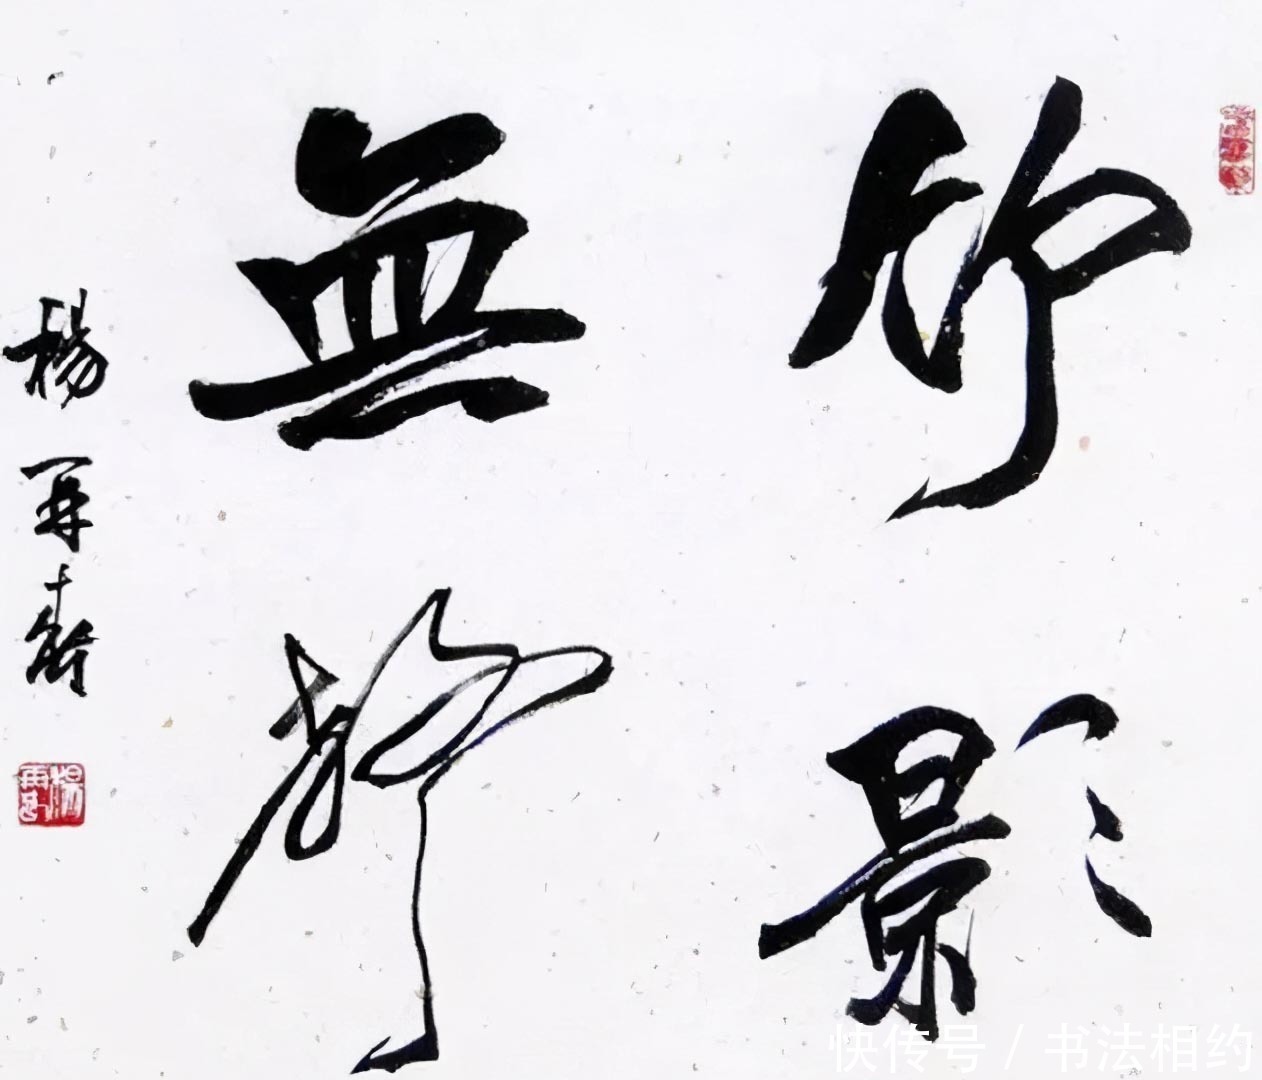 竹影
無聲
楊再春
快传号 / 书法相约